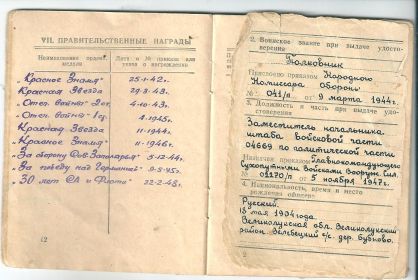 VII. ПРАВИТЕЛЬСТВЕННЫЕ НАГРАДЫ
Наименование ордена, медали
Дата и № приказа или указа о награждении
„Красное Знамя" 25-1-42г.
Красная Звезда 29-3-43г.
„Отеч. война" 2 ст. 4-10-43г.
„Отеч. Война" 1 ст. 4-1945г.
„Красная Звезда 11-1944г.
„Красное Знамя" 11-1946г.
„За оборону Сов. Заполярья" 5-12-44г.
„За победу над Германией" 9-5-45г.
„30 лет СА и Флота" 22-2-48г.
12
2. Воинское звание при выдаче удосто-
верения
Полковник
Присвоено приказом Народного
Комиссара обороны
№ 041/п от 9 марта 1944г.
3. Должность и часть при выдаче удо-
стоверения
Заместитель начальника
штаба войсковой части
04669 по политической части
Назначен приказом Главнокомандующего
Сухопутными Войсками Вооруж. Сил.
№ 01170/п от 5 ноября 1947г.
4. Национальность, время и место
рождения
Русский.
15 мая 1904 года.
Великолукская обл. Великолукский
район, с/с. дер.
2